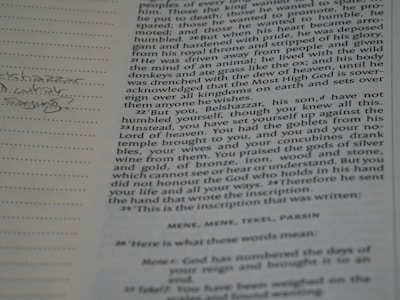 elshazzar
peoples of every
him. Those the king wanted to
put to death; those he wanted to
spared; those he wanted to promote, he pro-
moted; and those he wanted to humble, he
humbled. 20 But when his heart became arro-
gant and hardened with pride, he was deposed
from his royal throne and stripped of his glory.
21 He was driven away from people and given
the mind of an animal; he lived with the wild
donkeys and ate grass like the ox; and his body
was drenched with the dew of heaven, until he
acknowledged that the Most High God is sover-
eign over all kingdoms on earth and sets over
them anyone he wishes.
22 'But you, Belshazzar, his son, have not
humbled yourself, though you knew all this.
23 Instead, you have set yourself up against the
Lord of heaven. You had the goblets from his
temple brought to you, and you and your no-
bles, your wives and your concubines drank
wine from them. You praised the gods of silver
and gold, of bronze, iron, wood and stone,
which cannot see or hear or understand. But you
did not honour the God who holds in his hand
your life and all your ways. 24 Therefore he sent
the hand that wrote the inscription.
25 'This is the inscription that was written:
MENE, MENE, TEKEL, PARSIN
26 'Here is what these words mean:
Mene: God has numbered the days of
your reign and brought it to an
end.
27 Tekel: You have been weighed on the
scales and found wanting.